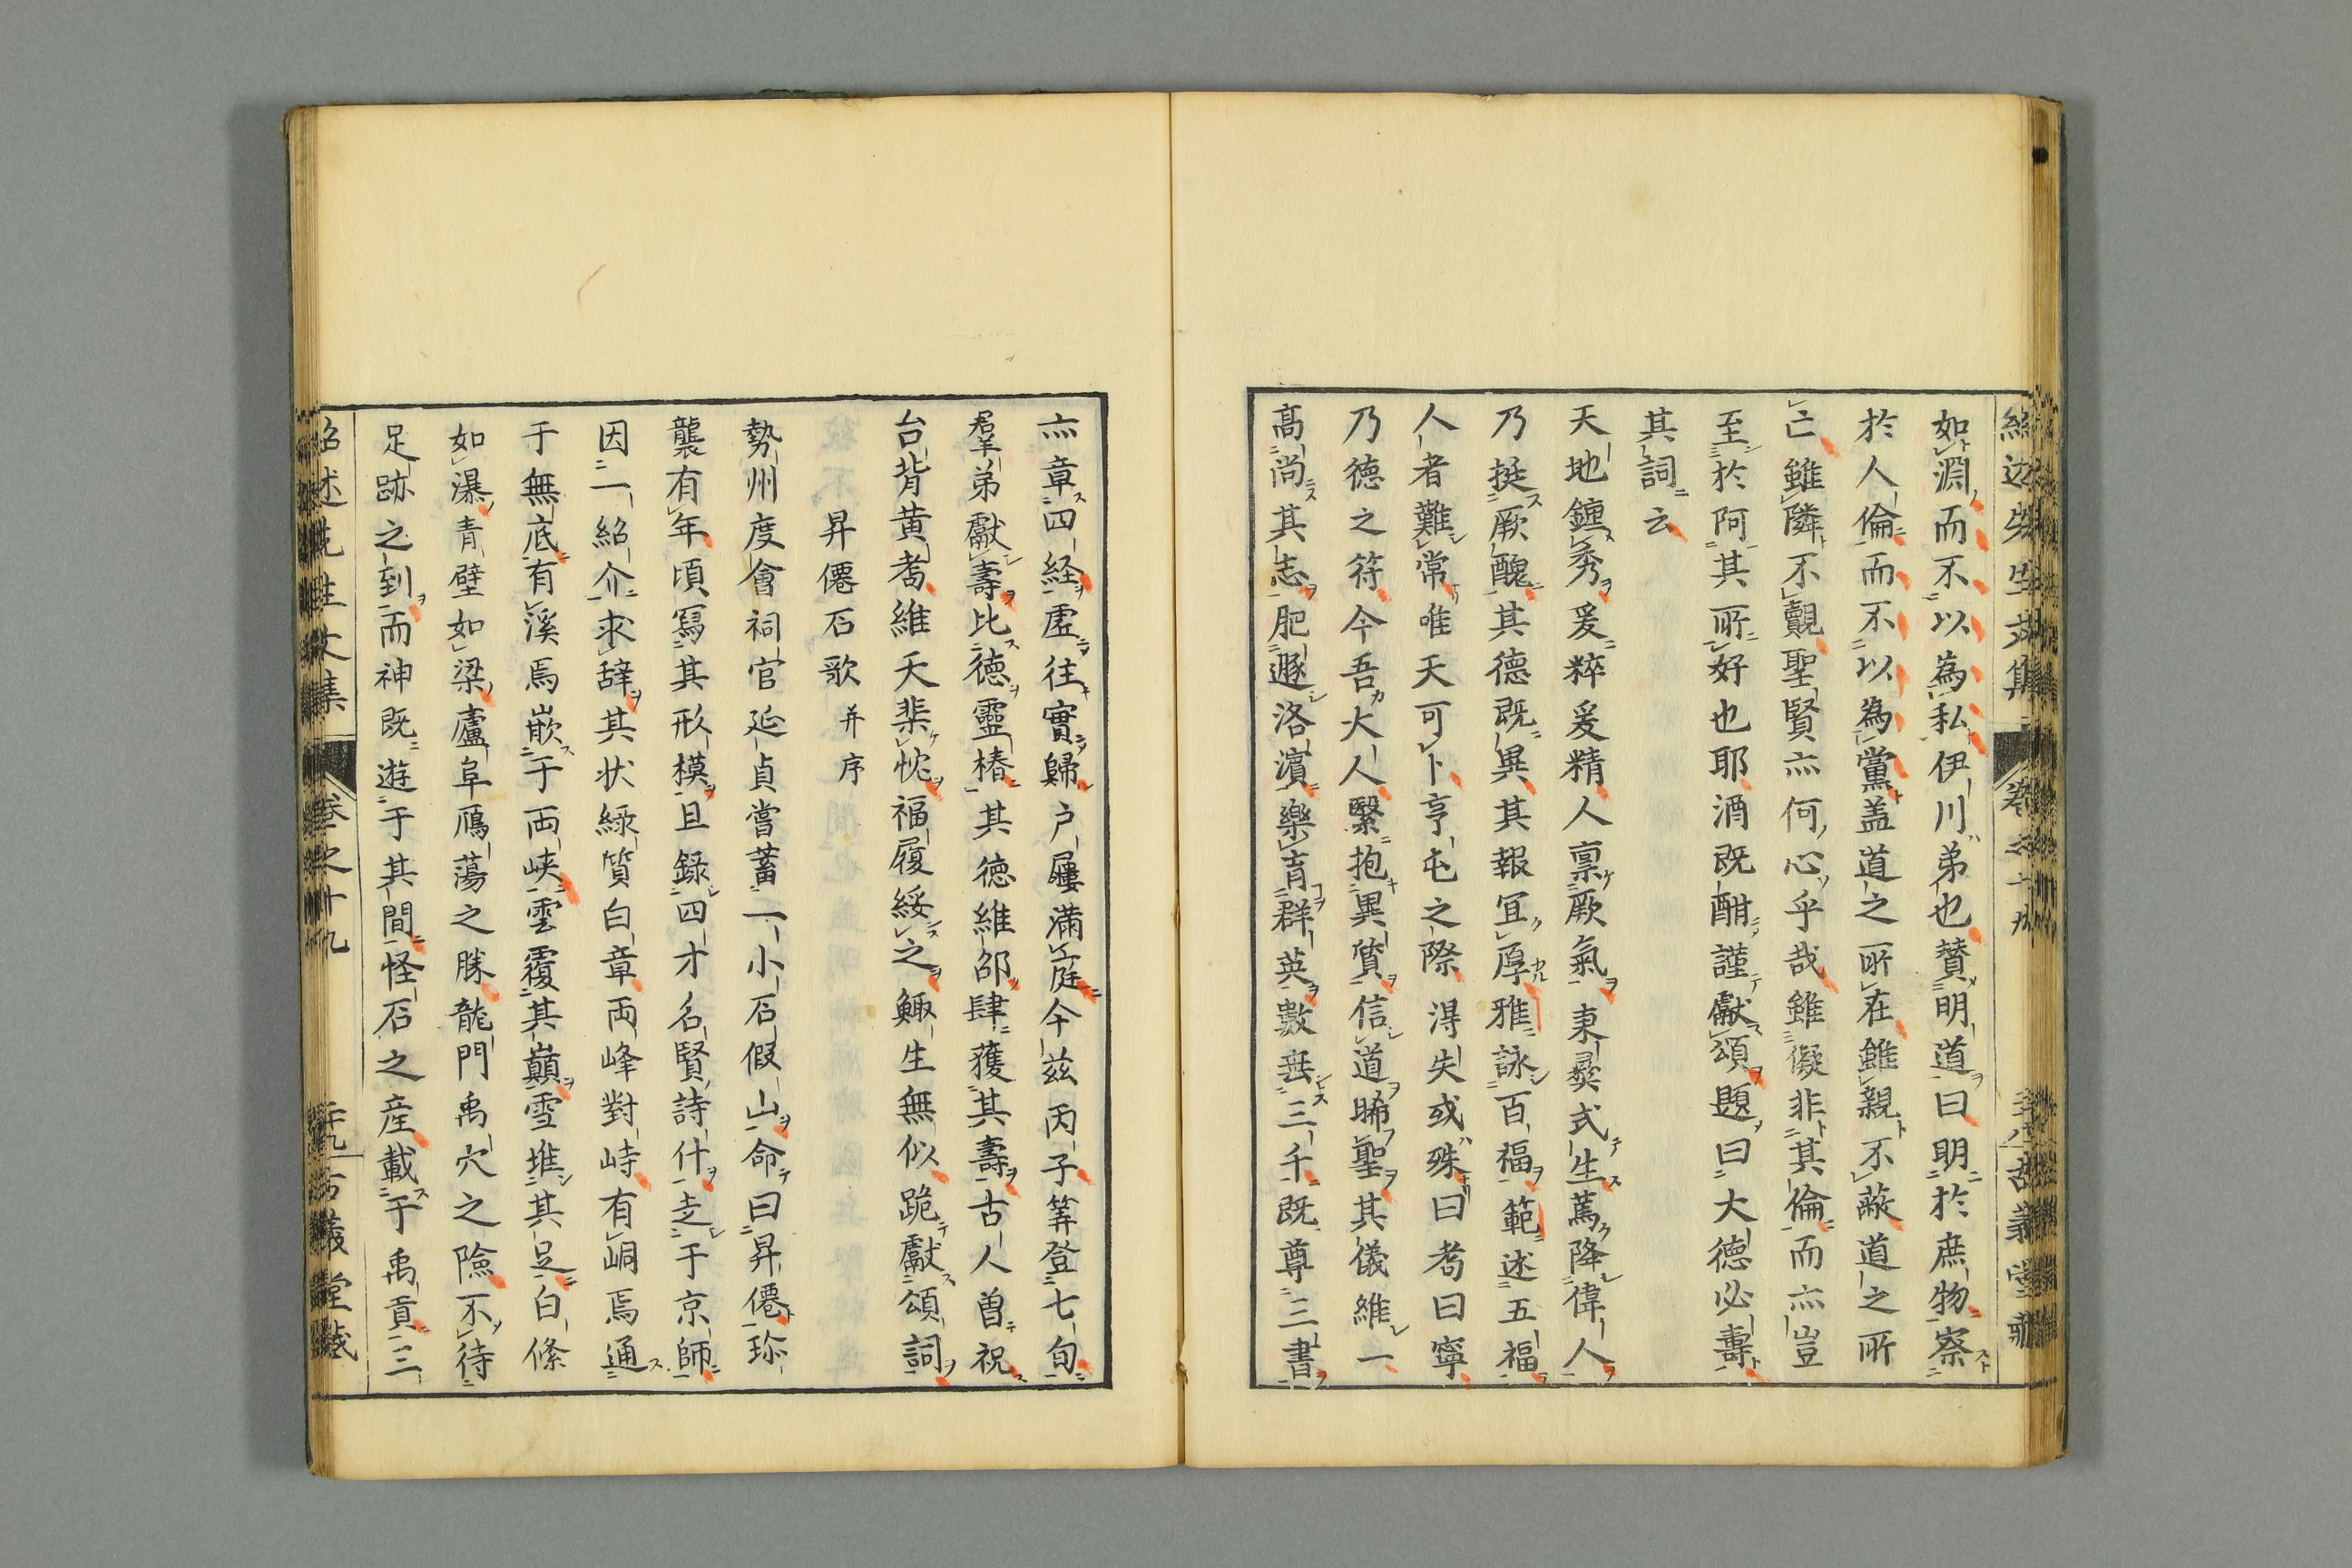 如淵而不以為私伊川弟也賛明道曰明於庶物察
於人倫而不以為黨盖道之所在雖親不蔽道之所
亡雖隣不覿聖賢亦何心乎哉雖儗非其倫而亦豈
至於阿其所好也耶酒既酣謹獻頌題曰大德必壽
其詞云
天地鍾秀爰粹爰精人禀厥氣秉彛式生蔫降偉人
乃挺厥醜其德既異其報冝厚雅詠百福範述五福
人者難常唯天可卜亨屯之際得失或殊曰耇曰寧
乃德之符今吾大人緊抱異質信道睎聖其儀維一
高尚其志肥遯洛濵樂育群英數垂三千既尊三書
亦章四経虛往實歸户屨满庭今兹丙子筭登七旬
羣弟獻壽比德靈椿其德維邵肆獲其壽古人曽祝
台背黄耇維天棐忱福履綏之鯫生無似跪獻頌詞
昇僊石歌并序
勢州度會祠官延貞嘗蓄一小石假山命曰昇僊珎
襲有年頃寫其形模且録四才名賢詩什走于京師
因一紹介求辞其状緑質白章両峰對峙有峒焉通
于無底有溪焉嵌于両峡雲覆其巓雪堆其足白條
如瀑青壁如梁廬阜鴈蕩之勝龍門禹穴之險不待
足跡之到而神既遊于其間怪石之産載于禹貢三
紹述先生文集 卷之十九 二十九 古義堂蔵